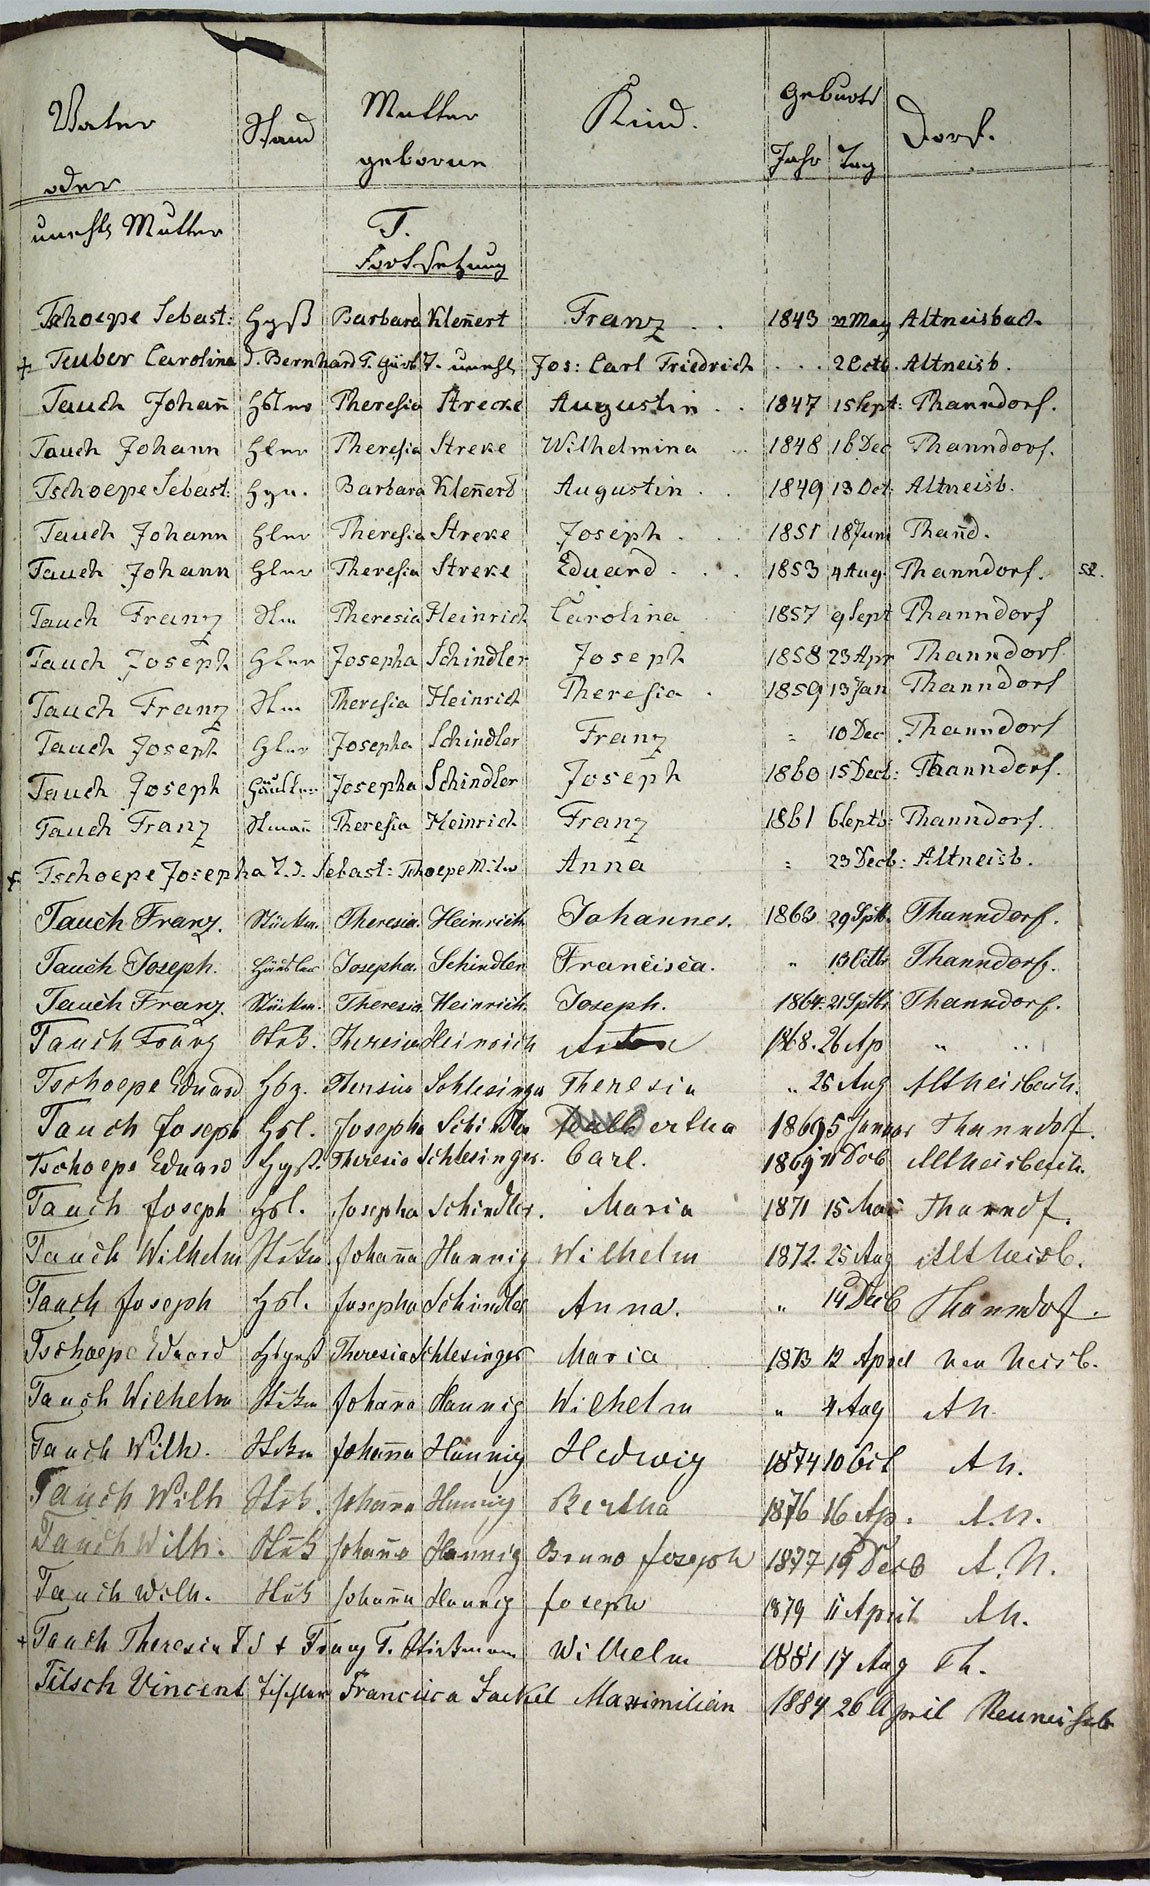 Vater Stand Mutter Kind. Geburts Dorf.
oder geborne Jahr Tag
unehl Mutter T.
Fortsetzung
Tschoepe Sebast: Hgß Barbara Kleñert Franz . . 1843 22 May Altneisbach
+ Teuber Carolina d. Bernhard T. T. unehl Jos: Carl Friedrich . . . 2 Octb. Altneisb.
Tauch Johañ Hslno Theresia Strecke Augustin . . 1847 1 Sept: Thanndorf.
Tauch Johann Hler Theresia Streke Wilhelmina 1848 16 Dec Thanndorf.
Tschoepe Sebast: Hgn. Barbara Kleñert Augustin . 1849 13 Oct: Altneisb.
Tauch Johann Hler Theresia Streke Joseph . 1851 18 Juni Thañd.
Tauch Johann Hler Theresia Streke Eduard . . . 1853 4 Aug. Thanndorf.
Tauch Franz Stm Theresia Heinrich Carolina 1857 9 Sept Thanndorf
Tauch Joseph Hler Josepha Schindler Joseph 1858 23 Apr Thanndorf
Tauch Franz Stm Theresia Heinrich Theresia . 1859 13 Jan Thanndorf
Tauch Joseph Hler Josepha Schindler Franz = 10 Dec Thanndorf
Tauch Joseph Häusler Josepha Schindler Joseph 1860 15 Decb: Thanndorf.
Tauch Franz Stmañ Theresia Heinrich Franz 1861 6 Septb: Thanndorf.
+ Tschoepe Josepha T. d. Sebast: Tschoepe Anna = 23 Decb: Altneisb.
Tauch Franz. Stückm. Theresia. Heinrich Johannes. 1863 29 Sptb. Thanndorf.
Tauch Joseph. Häusler Josepha. Schindler Francisca. " 13 Octbr Thanndorf.
Tauch Franz. Stückm. Theresia Heinrich. Joseph. 1864. 21 Sptbr Thanndorf.
Tauch Franz Stk. Theresia Heinrich 1868. 26 Ap " "
Tschoepe Eduard Hbg. Theresia Schlesinger Theresia " 25 Aug Altneisbach.
Tauch Joseph Hsl. Josepha Schindler 1869 5 Januar Thanndolf.
Tschoepe Eduard Hgß. Theresia Schlesinger. Carl. 1869 11 Dcb Altneisbach.
Tauch Joseph Hsl. Josepha Schindler. Maria 1871 15 Mai Thanndf.
Tauch Wilhelm Stkm. Johaña Hannig Wilhelm 1872. 25 Aug Altneisb.
Tauch Joseph Hsl. Josepha Schindler Anna. " 14 Decb Thanndof.
Tschoepe Eduard Hbgnß Theresia Schlesinger Maria 1873 12 April Neu Neisb.
Tauch Wilhelm Stkm Johaña Hannig Wilhelm " 4 Aug AN.
Tauch Wilh. Stkm Johaña Hannig Hedwig 1874 10 Oct AN.
Tauch Wilh Stk. Johaña Hannig Bertha 1876 16 Ap. A.N.
Tauch Wilh. Stk Johaña Hannig Bruno Joseph 1877 19 Decb A.N.
Tauch Wilh. Stk Johaña Hannig Joseph 1879 11 April AN.
+ Tauch Theresia T d + Franz T. Stückmann Wilhelm 1881 17 Aug Th.
Titsch Vincent Tischler Francisca Jackel Maximilian 1884 26 April Neuneisb